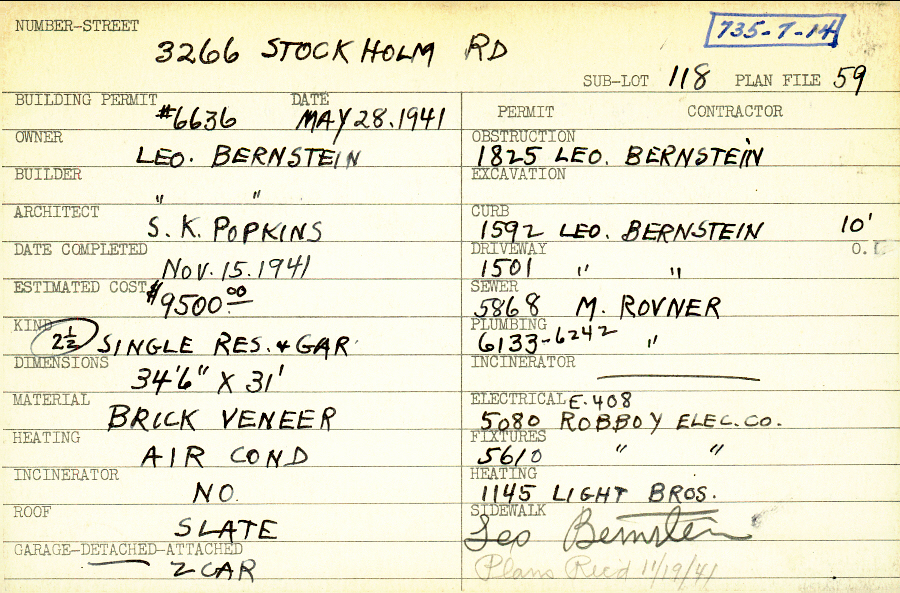 NUMBER-STREET
735-7-14
3266 STOCKHOLM RD
SUB-LOT 118 PLAN FILE 59
BUILDING PERMIT #6636 DATE MAY 28.1941
OWNER LEO. BERNSTEIN
BUILDER " "
ARCHITECT S. K. POPKINS
DATE COMPLETED NOV. 15.1941
ESTIMATED COST $9500.00
KIND 2½ SINGLE RES. & GAR
DIMENSIONS 34'6" X 31'
MATERIAL BRICK VENEER
HEATING AIR COND
INCINERATOR NO.
ROOF SLATE
GARAGE-DETACHED-ATTACHED 2 CAR
PERMIT CONTRACTOR
OBSTRUCTION 1825 LEO. BERNSTEIN
EXCAVATION
CURB 1592 LEO. BERNSTEIN 10'
DRIVEWAY 1501 " " O.
SEWER 5868 M. ROVNER
PLUMBING 6133-6242 "
INCINERATOR
ELECTRICAL E.408
5080 ROBBOY ELEC.CO.
FIXTURES 5610 " "
HEATING 1145 LIGHT BROS.
SIDEWALK Leo Bernstein
Plans Rec'd 11/19/41